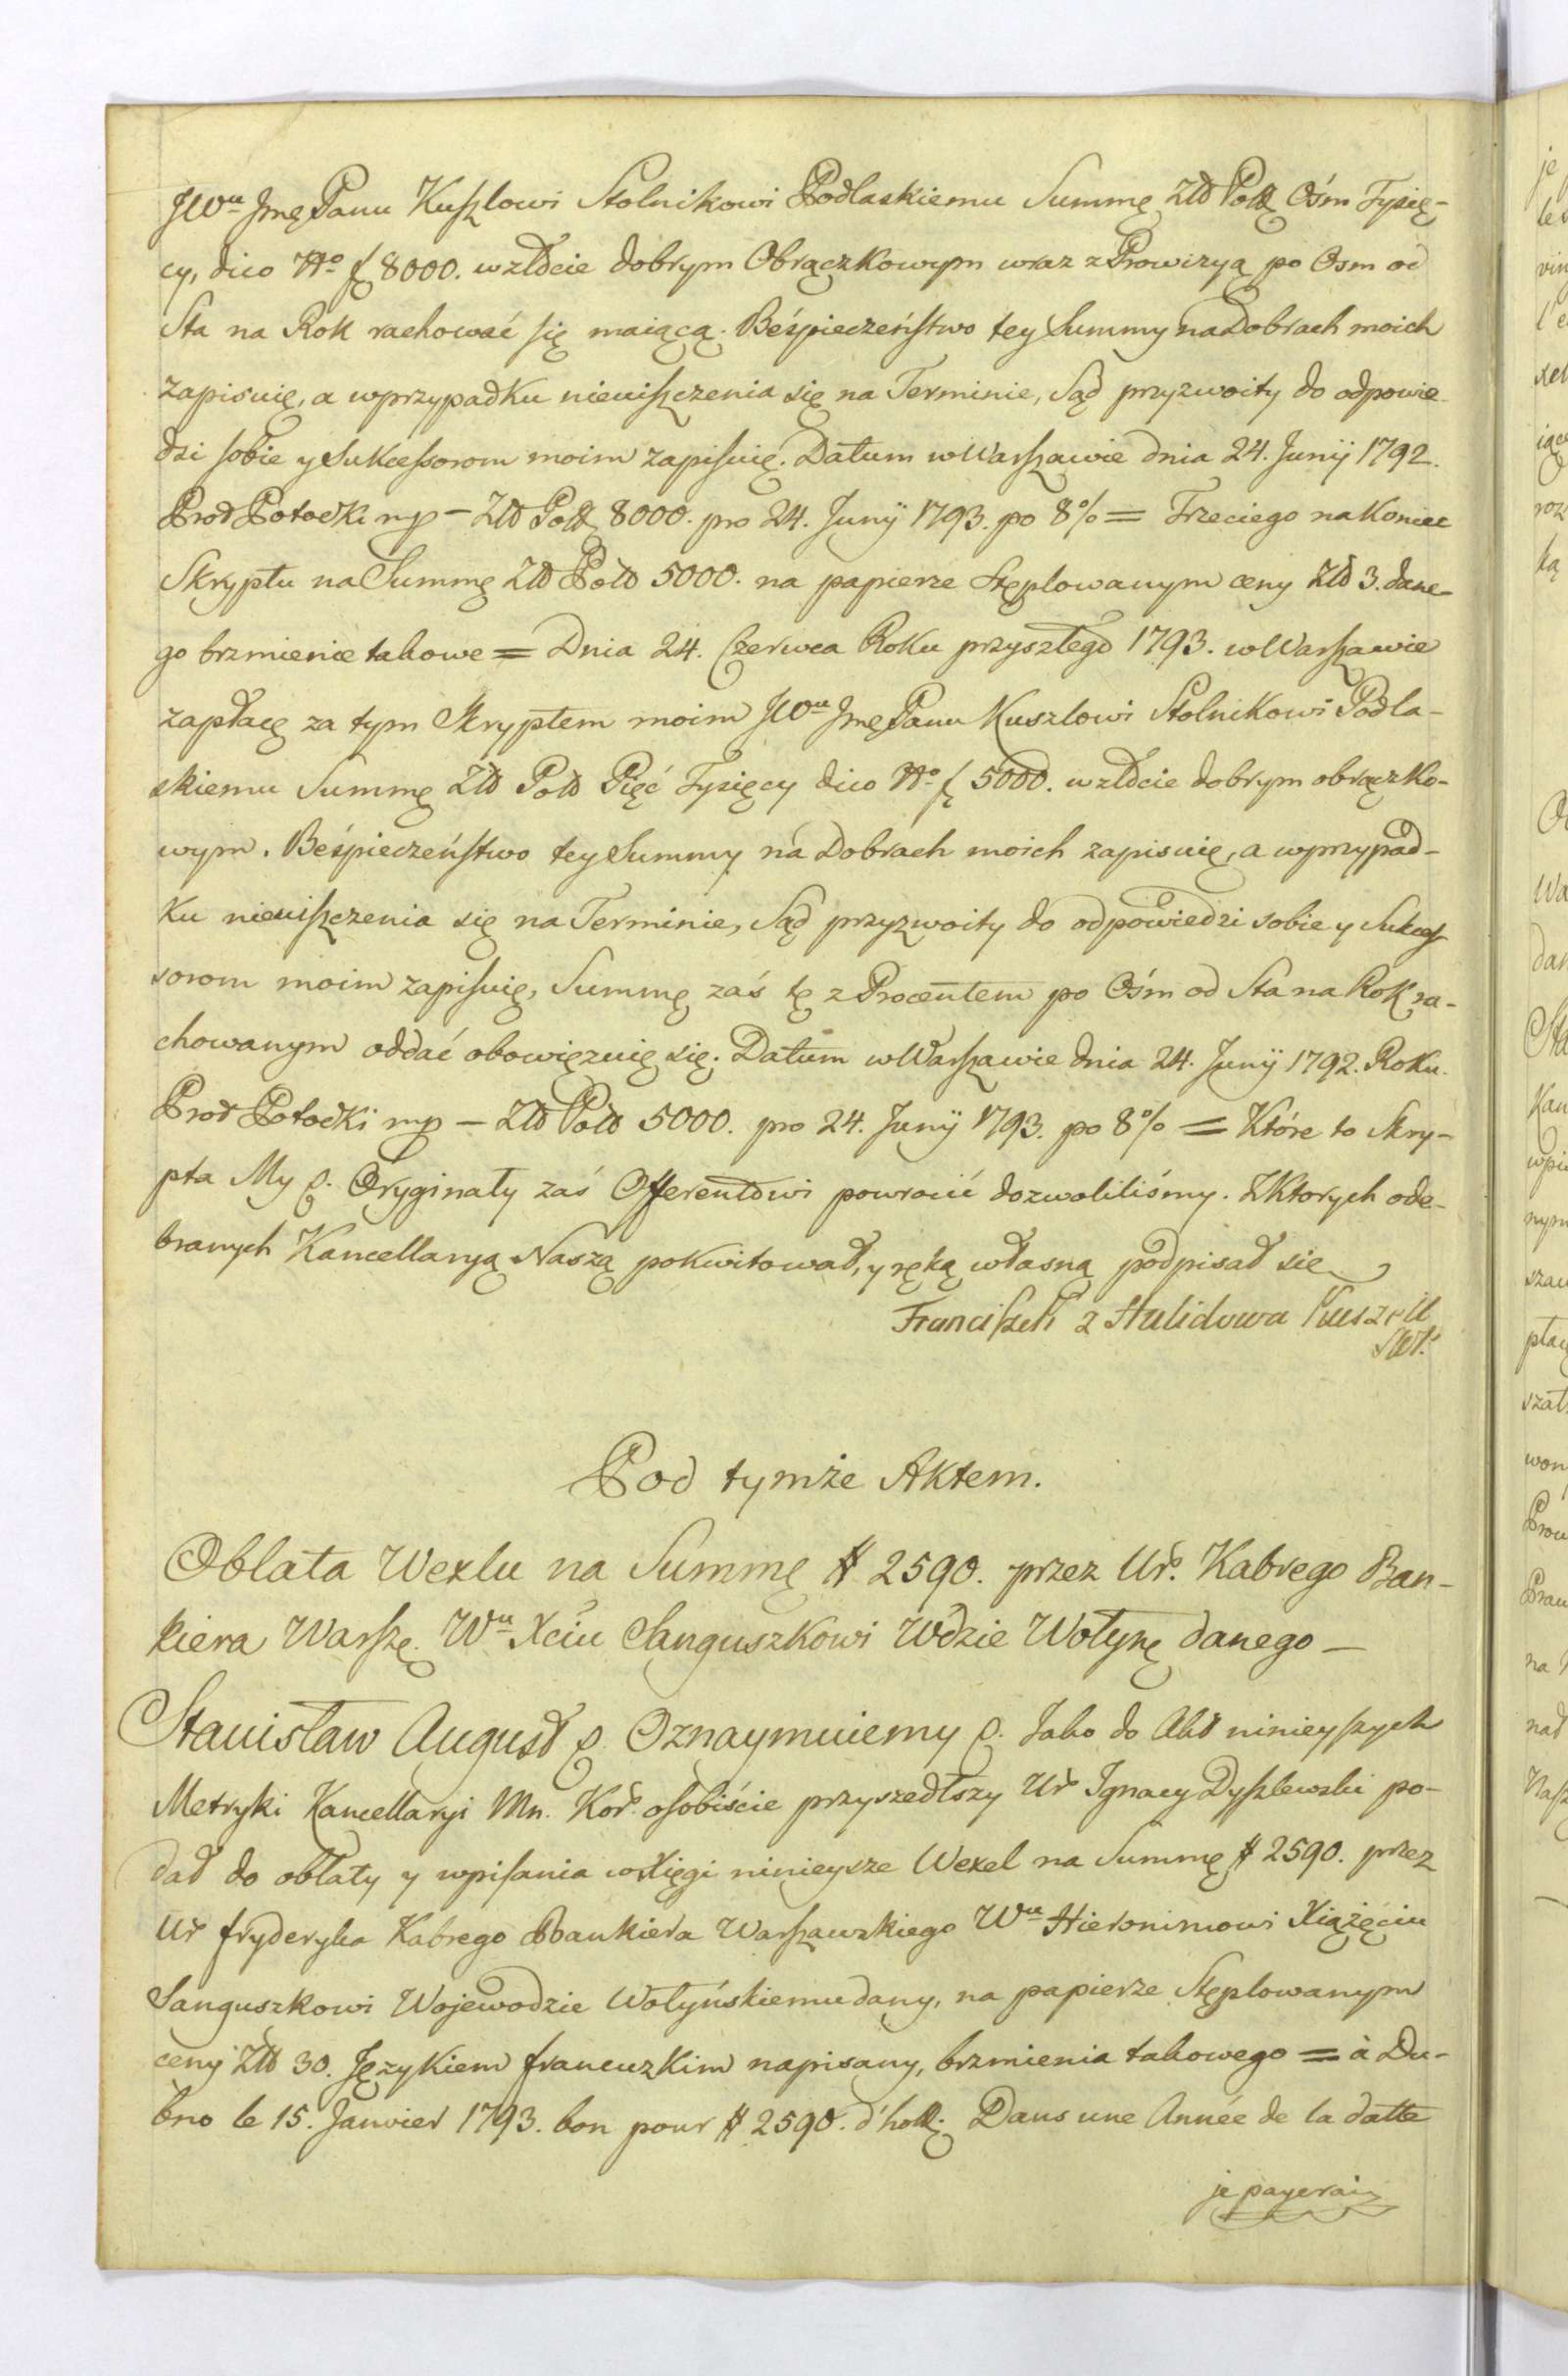 JWu Jmę Panu Kuszlowi Stolnikowi Podlaskiemu Summę Złł Polł Ośm Tysię-
cy, dico No f 8000. w złocie dobrym Obrączkowym wraz z Prowizyą po Osm od
Sta na Rok rachować się maiącą. Beśpieczeństwo tey Summy na Dobrach moich
zapisuię, a w przypadku nieuiszczenia się na Terminie, Sąd przyzwoity do odpowie-
dzi sobie y Sukcessorom moim zapisuię. Datum w Warszawie dnia 24. Junÿ 1792.
Prot Potocki mp – Złł Polł 8000. pro 24. Junÿ 1793. po 8% = Trzeciego na koniec
Skryptu na Summę Złł Polł 5000. na papierze Stęplowanym ceny Złł 3. dane-
go brzmienie takowe = Dnia 24. Czerwca Roku przyszłego 1793. w Warszawie
zapłacę za tym Skryptem moim JWu Jmę Panu Kuszlowi Stolnikowi Podla-
skiemu Summę Złł Polł Pięć Tysięcy dico No f 5000. w złocie dobrym obrączko-
wym. Beśpieczeństwo tey Summy na Dobrach moich zapisuię, a w przypad-
ku nieuiszczenia się na Terminie, Sąd przyzwoity do odpowiedzi sobie y Sukces-
sorom moim zapisuię, Summę zaś tę z Procentem po Ośm od Sta na Rok ra-
chowanym oddać obowięzuię się. Datum w Warszawie dnia 24. Junÿ 1792. Roku.
Prot Potocki mp – Złł Polł 5000. pro 24. Junÿ 1793. po 8% = Które to Skry-
pta My p. Oryginały zaś Offerentowi powrocić dozwoliliśmy. Z Ktorych ode-
branych Kancellaryą Naszą pokwitował, y ręką własną podpisał się
Franciszek z Hulidowa Kuszell
Pod tymże Aktem.
Oblata Wexlu na Summę # 2590. przez Ur. Kabrego Ban-
kiera Warszę. Wu Xciu Sanguszkowi Wdzie Wołynę danego –
Stanisław August p. Oznaymuiemy p. Jako do Akt ninieyszych
Metryki Kancellaryi Mn. Kor. osobiście przyszedłszy Ur Ignacy Dyszlewski po-
dał do oblaty y wpisania w Xięgi ninieysze Wexel na Summę # 2590. przez
Ur fryderyka Kabrego Bankiera Warszawskiego Wu Hieronimowi Xiążęciu
Sanguszkowi Wojewodzie Wołyńskiemu dany, na papierze Stęplowanym
ceny Złł 30. Językiem francuzkim napisany, brzmienia takowego = à Du-
bno le 15. Janvier 1793. bon pour # 2590. d'holl. Dans une Année de la datte
je payerai